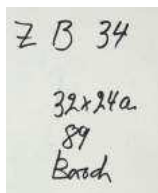 Z B 34
32x24a
89
Borch